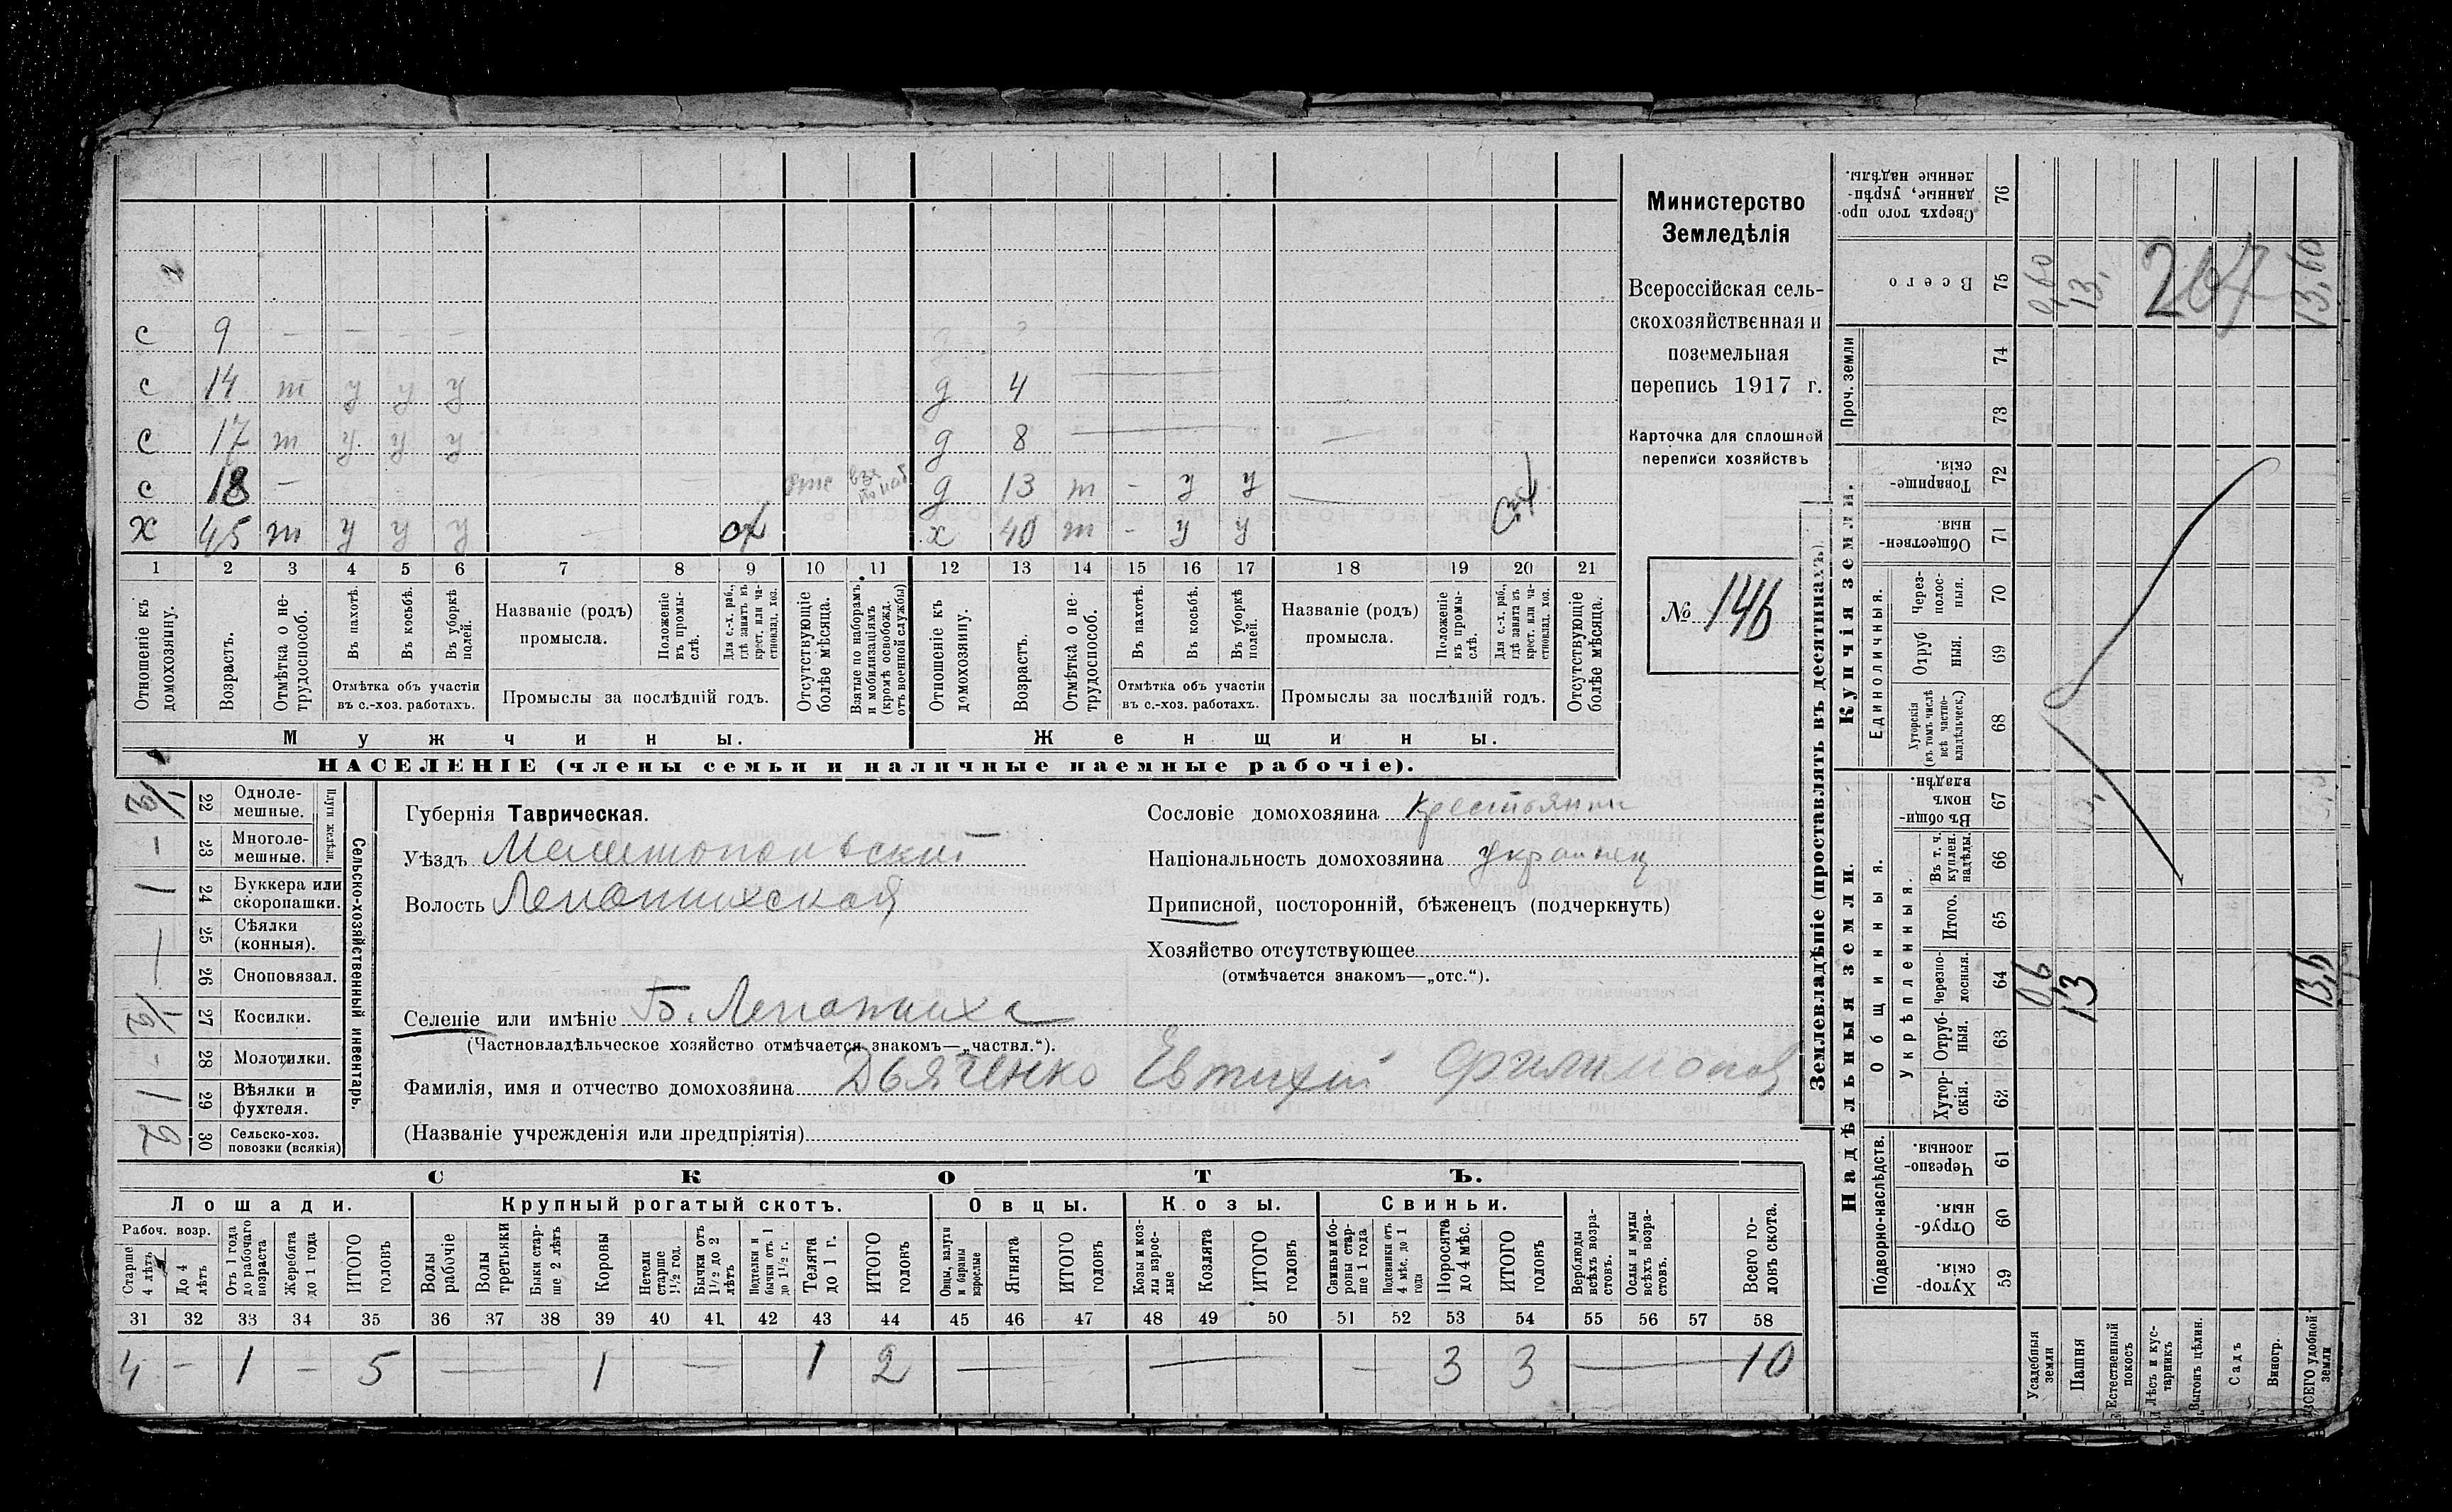 с 9 — — — —
с 14 т у у у д 4
с 17 т у у у д 8
с 18 — отс д 13 т - у у
х 45 т у у у х 40 т - у у
1 2 3 4 5 6 7 8 9 10 11 12 13 14 15 16 17 18 19 20 21
Отношеніе къ домохозяину.
Возрастъ.
Отмѣтка о не-трудоспособ.
Въ пахотѣ.
Въ косьбѣ.
Въ уборкѣ полей.
Отмѣтка объ участіи
въ с.-хоз. работахъ.
Названіе (родъ)
промысла.
Положеніе въ промы-слѣ.
Для с.-х. раб., гдѣ занятъ въ крест. или ча-стновлад. хоз.
Промыслы за послѣдній годъ.
Отсутствующіе болѣе мѣсяца.
Взятые по наборамъ и мобилизаціямъ (кромѣ освобожд. отъ военной службы)
Отношеніе къ домохозяину.
Возрастъ.
Отмѣтка о не-трудоспособ.
Въ пахотѣ.
Въ косьбѣ.
Въ уборкѣ полей.
Отмѣтка объ участіи
въ с.-хоз. работахъ.
Названіе (родъ)
промысла.
Положеніе въ промы-слѣ.
Для с.-х. раб., гдѣ занята въ крест. или ча-стновлад. хоз.
Промыслы за послѣдній годъ.
Отсутствующіе болѣе мѣсяца.
Мужчины.
Женщины.
НАСЕЛЕНІЕ (члены семьи и наличные наемные рабочіе).
Министерство
Земледѣлія
Всероссійская сель-
скохозяйственная и
поземельная
перепись 1917 г.
Карточка для сплошной
переписи хозяйствъ
№ 146
1/2 22 Одноле-мешные.
- 23 Многоле-мешные.
Плуги желѣзн.
1 24 Буккера или скоропашки.
— 25 Сѣялки (конныя).
— 26 Сноповязал.
1/2 27 Косилки.
- 28 Молотилки.
1 29 Вѣялки и фухтеля.
2 30 Сельско-хоз. повозки (всякія)
Сельско-хозяйственный инвентарь.
Губернія Таврическая.
Уѣздъ Мелитопольский
Волость Лепатихская
Селеніе или имѣніе Б. Лепатиха
(Частновладѣльческое хозяйство отмѣчается знакомъ—„частвл.“).
Фамилія, имя и отчество домохозяина Дьяченко Евтихий Филимонов
(Названіе учрежденія или предпріятія)
Сословіе домохозяина Крестьянин
Національность домохозяина украинец
Приписной, посторонній, бѣженецъ (подчеркнуть)
Хозяйство отсутствующее
(отмѣчается знакомъ—„отс.“).
СКОТЪ.
Лошади. Крупный рогатый скотъ. Овцы. Козы. Свиньи.
Рабоч. возр.
Старше 4 лѣтъ
До 4 лѣтъ
Отъ 1 года до рабочаго возраста
Жеребята до 1 года
ИТОГО головъ
Волы рабочіе
Волы третьяки
Быки стар-ше 2 лѣтъ
Коровы
Нетели старше 1 1/2 год.
Бычки отъ 1 1/2 до 2 лѣтъ
Подтелки и бычки отъ 1 до 1 1/2 г.
Телята до 1 г.
ИТОГО головъ
Овцы, валухи и бараны взрослые
Ягнята
ИТОГО головъ
Козы и коз-лы взрос-лые
Козлята
ИТОГО головъ
Свиньи и бо-ровы стар-ше 1 года
Подсвинки отъ 4 мѣс. до 1 года
Поросята до 4 мѣс.
ИТОГО головъ
Верблюды всѣхъ возра-стовъ.
Ослы и мулы всѣхъ возра-стовъ.
Всего го-ловъ скота.
31 32 33 34 35 36 37 38 39 40 41 42 43 44 45 46 47 48 49 50 51 52 53 54 55 56 57 58
4 — 1 — 5 — 1 — 1 2 — — — 3 3 — 10
Землевладѣніе (проставлять въ десятинахъ).
Надѣльныя земли.
Купчія земли.
Проч. земли
Подворно-наслѣдств.
Общинныя.
Укрѣпленныя.
Единоличныя.
Сверхъ того про-данные, укрѣп-ленные надѣлы. 76
Всего 75 0,60 13, 13,60
267
74
73
Товарище-скія. 72
Обществен-ныя. 71
Через-полос-ныя. 70
Отруб ныя. 69
Хуторскія (въ томъ числѣ всѣ частно-владѣльческ.) 68
Въ общи-номъ владѣн. 67
Въ т. ч. куплен. надѣлы. 66
Итого. 65
Черезпо-лосныя. 64 06 13 13,6
Отруб-ныя. 63
Хутор-скія. 62
Черезпо-лосныя 61
Отруб-ныя. 60
Хутор-скія. 59
Усадебныя земли
Пашня
Естественный покосъ
Лѣсъ и кус-тарникъ
Выгонъ цѣлин.
Садъ
Виногр.
ВСЕГО удобной земли